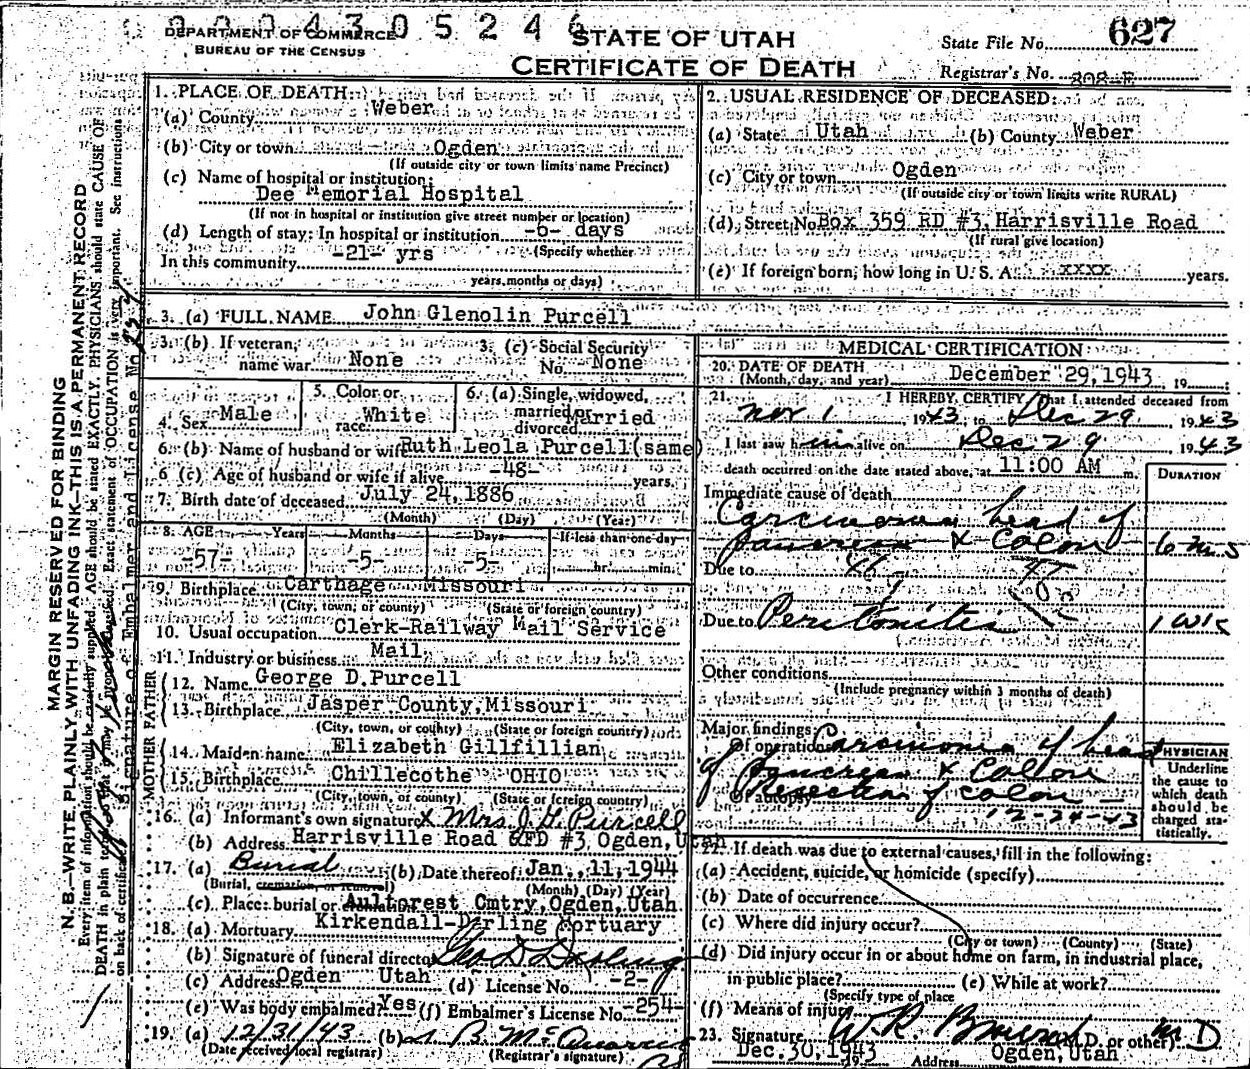 0004305246
DEPARTMENT OF COMMERCE
BUREAU OF THE CENSUS
STATE OF UTAH
CERTIFICATE OF DEATH
State File No. 627
Registrar's No. 808-E
MARGIN RESERVED FOR BINDING
N. B.—WRITE PLAINLY WITH UNFADING INK—THIS IS A PERMANENT RECORD
Every item of information should be carefully supplied. AGE should be stated EXACTLY. PHYSICIANS should state CAUSE OF
DEATH in plain terms Exact statement of OCCUPATION is very important. See instructions
on back of certificate.
Signature of Embalmer and License No.
1. PLACE OF DEATH:
(a) County Weber
(b) City or town Ogden
(If outside city or town limits name Precinct)
(c) Name of hospital or institution:
Dee Memorial Hospital
(If not in hospital or institution give street number or location)
(d) Length of stay: In hospital or institution -6- days
(Specify whether
In this community -21- yrs
years, months or days)
2. USUAL RESIDENCE OF DECEASED:
(a) State Utah (b) County Weber
(c) City or town Ogden
(If outside city or town limits write RURAL)
(d) Street No. Box 359 RD #3, Harrisville Road
(If rural give location)
(e) If foreign born, how long in U. S. A. xxxx years.
3. (a) FULL NAME John Glenolin Purcell
3. (b) If veteran,
name war None
3. (c) Social Security
No. None
4. Sex Male
5. Color or
race White
6. (a) Single, widowed,
married or
divorced Married
6. (b) Name of husband or wife Ruth Leola Purcell(same)
6 (c) Age of husband or wife if alive -48- years.
7. Birth date of deceased July 24,1886
(Month) (Day) (Year)
8. AGE Years Months Days If less than one day
-57- -5- -5- hr. min.
9. Birthplace Carthage Missouri
(City, town, or county) (State or foreign country)
10. Usual occupation Clerk-Railway Mail Service
11. Industry or business Mail
FATHER
12. Name George D.Purcell
13. Birthplace Jasper County,Missouri
(City, town, or county) (State or foreign country)
MOTHER
14. Maiden name Elizabeth Gillfillian
15. Birthplace Chillecothe OHIO
(City, town, or county) (State or foreign country)
16. (a) Informant's own signature X Mrs. J. G. Purcell
(b) Address Harrisville Road RFD #3, Ogden, Utah
17. (a) Burial (b) Date thereof Jan., 11,1944
(Burial, cremation, or removal) (Month) (Day) (Year)
(c) Place: burial or cremation Aultorest Cmtry,Ogden,Utah
18. (a) Mortuary Kirkendall-Darling Mortuary
(b) Signature of funeral director Geo D Darling
(c) Address Ogden Utah (d) License No. -2-
(e) Was body embalmed? Yes (f) Embalmer's License No. -254-
19. (a) 12/31/43 (b)
(Date received local registrar) (Registrar's signature)
MEDICAL CERTIFICATION
20. DATE OF DEATH
(Month, day, and year) December 29,1943 , 19
21. I HEREBY CERTIFY, That I attended deceased from
Nov 1 1943, to Dec 29, 1943
I last saw him alive on Dec 29 1943
death occurred on the date stated above, at 11:00 AM m.
DURATION
Immediate cause of death
Carcinoma head of
pancreas & Colon 6 mos
Due to 46
Due to Peritonitis 1 wk
Other conditions
(Include pregnancy within 3 months of death)
Major findings:
Of operations Carcinoma of head
of Pancreas & Colon
Of autopsy Resection of colon —
12-24-43
PHYSICIAN
Underline
the cause to
which death
should be
charged sta-
tistically.
22. If death was due to external causes, fill in the following:
(a) Accident, suicide, or homicide (specify)
(b) Date of occurrence
(c) Where did injury occur?
(City or town) (County) (State)
(d) Did injury occur in or about home on farm, in industrial place,
in public place? (e) While at work?
(Specify type of place
(f) Means of injury
23. Signature W. R. M D
(M.D. or other)
Dec. 30,1943 Address Ogden,Utah
19